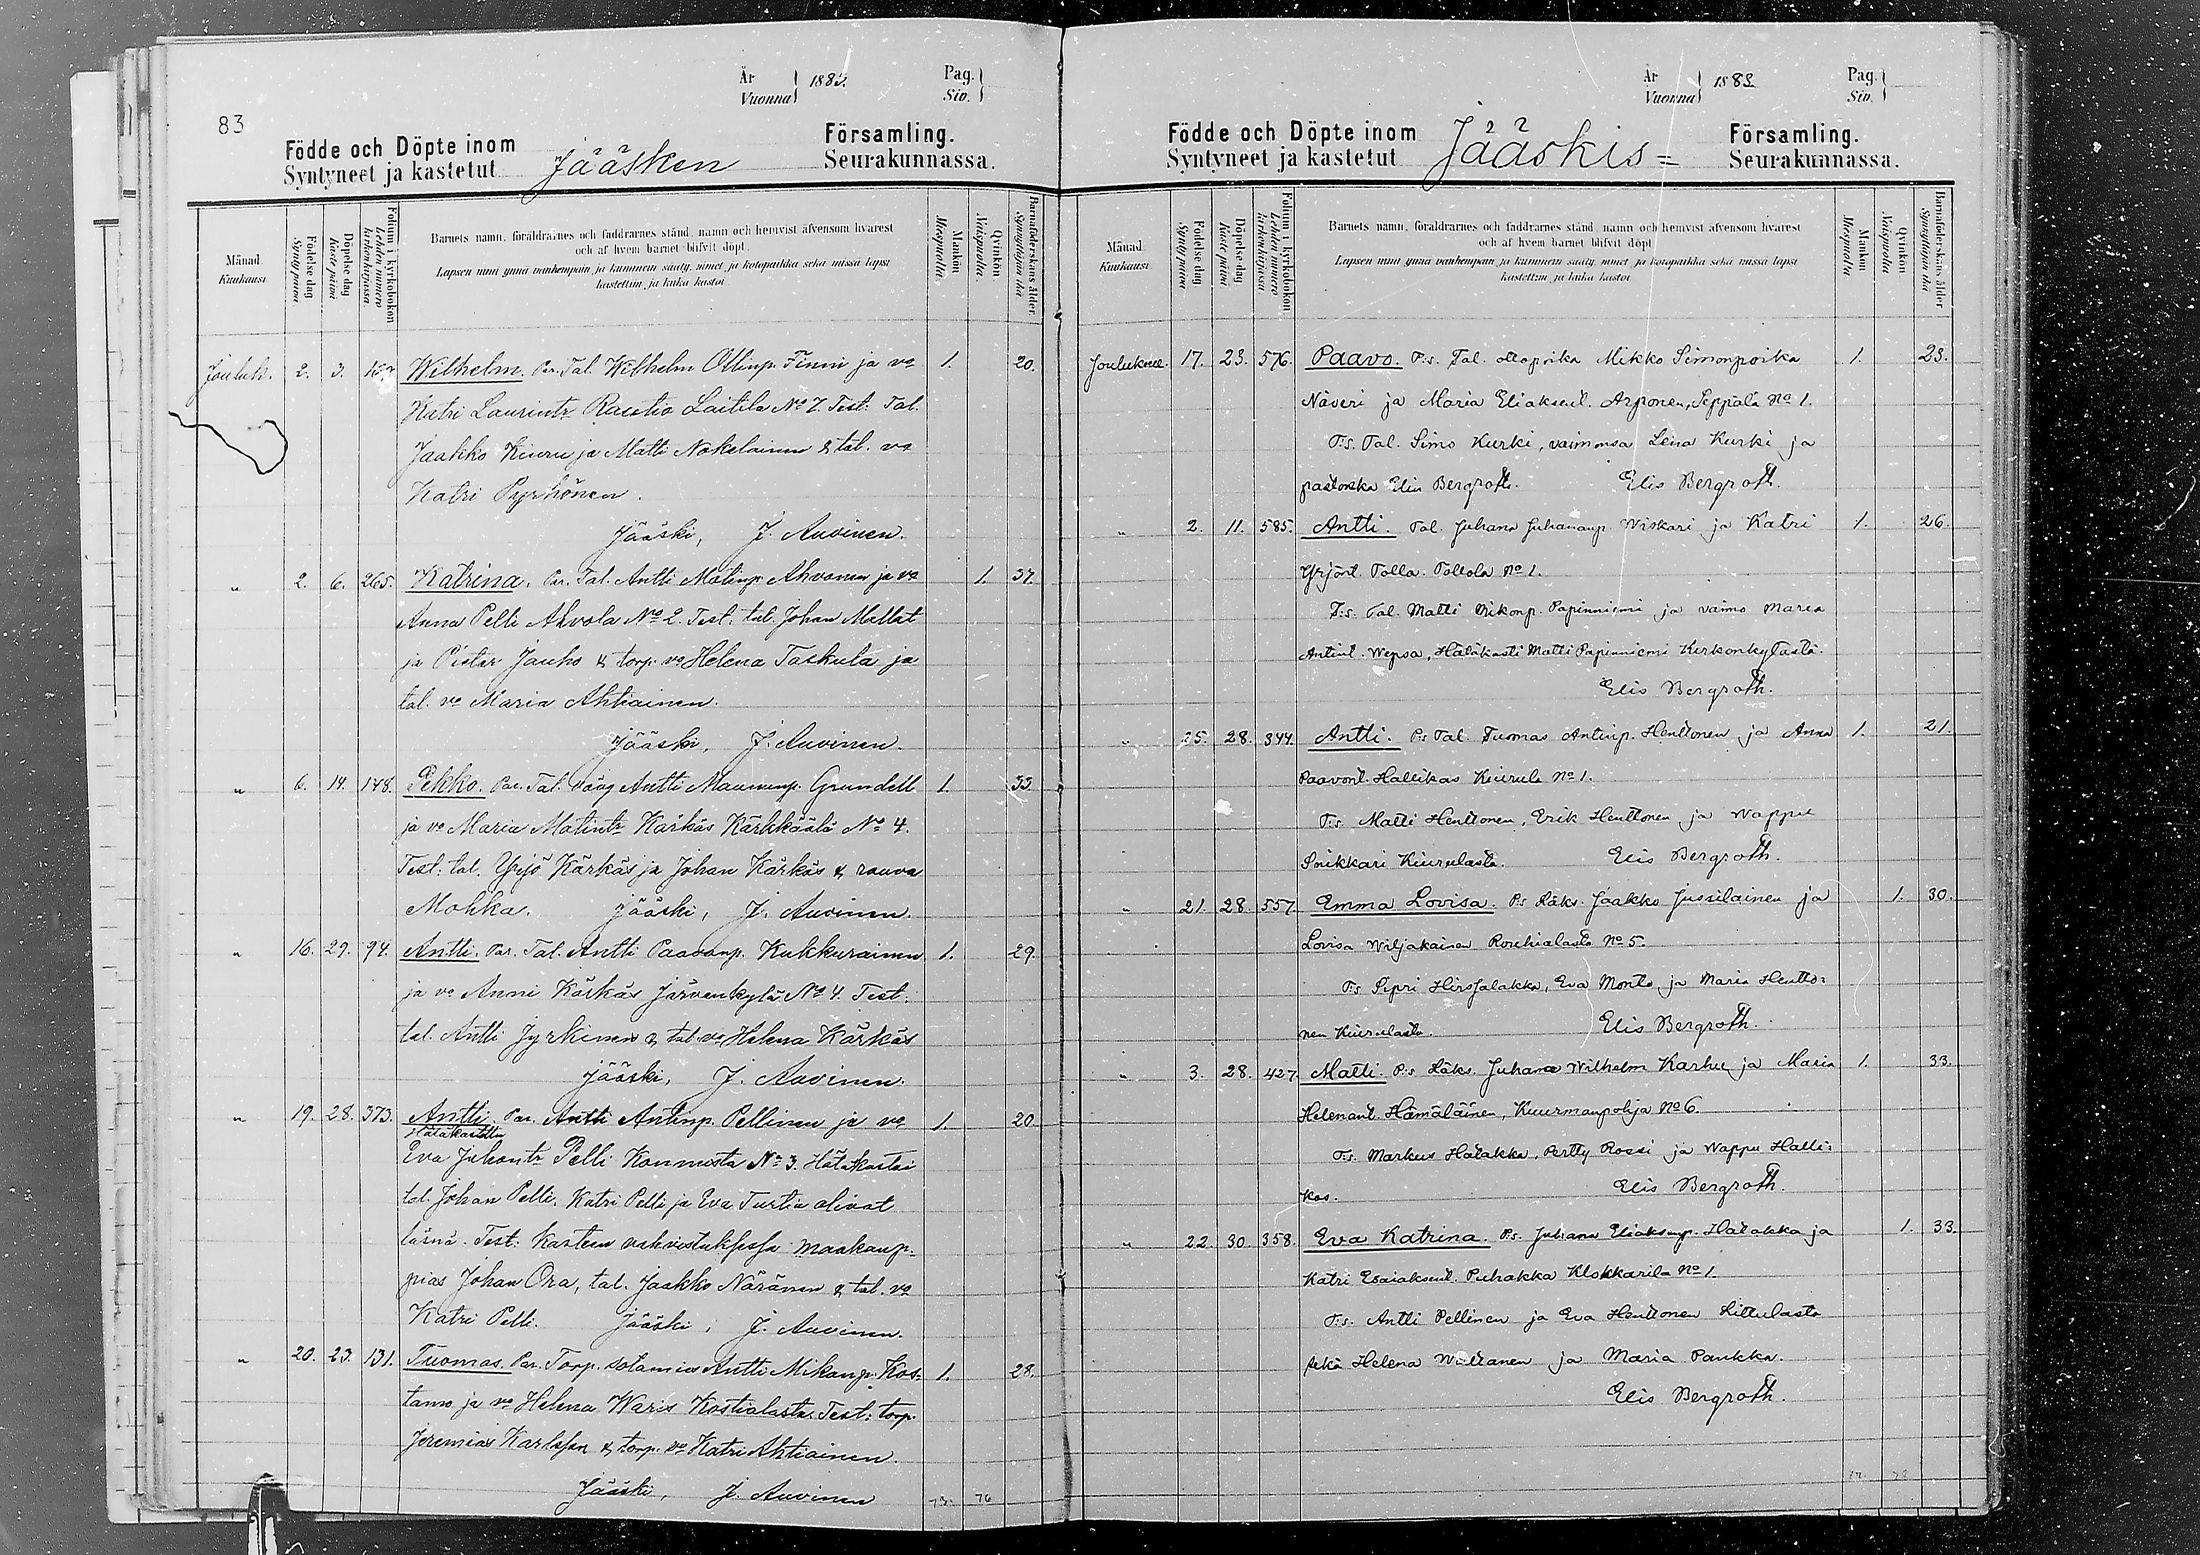 83
År
Vuonna
1883.
Pag.
Siv.
Födde och Döpte inom
Syntyneet ja kastetut
Jääsken
Församling.
Seurakunnassa.
Månad.
Kuukausi
Födelse dag
Synty päivä
Döpelse dag
Kaste päivä
Folium i kyrkoboken
Lehden numero kirkonkirjassa
Barnets namn, föräldrarnes och faddrarnes stånd, namn och hemvist äfvensom hvarest
och af hvem barnet blifvit döpt.
Lapsen nimi ynnä vanhempain ja kummein sääty, nimet ja kotopaikka sekä missä lapsi
kastettiin ja kuka kastoi
Mankön
Miespuolta
Qvinkön.
Naispuolta.
Barnaföderskans ålder.
Synnyttäjän ikä
Jouluk. 2. 3. Wilhelm. Par. Tal. Wilhelm Ollinp. Finni ja vo 1. 20.
Katri Laurintr Rautio Laitila No 7. Test: Tal.
Jaakko Kiuru ja Matti Nokelainen & tal. vo
Katri Pyrhönen.
Jääski, J. Auvinen.
" 2. 6. 265. Katrina. Par. Tal. Antti Matinp. Ahvonen ja vo 1. 37.
Anna Pelli Ahvola No 2. Test: tal. Johan Mallat
ja Pietar Jauho & torp. vo Helena Taskula ja
tal. vo Maria Ahtiainen.
Jääski, J. Auvinen.
" 6. 14. 148. Pekko. Par. Tal. Antti Maununp. Grundell 1. 33.
ja vo Maria Matintr Kärkäs Kärkkäälä No 4.
Test: tal. Yrjö Kärkäs ja Johan Kärkäs & rouva
Mohka. Jääski, J. Auvinen.
" 16. 29. 94. Antti. Par. Tal. Antti Paavonp. Kukkurainen 1. 29.
ja vo Anni Kärkäs Järvenkylä No 4. Test:
tal. Antti Jyrkinen & tal. vo Helena Kärkäs
Jääski, J. Auvinen.
" 19. 28. 373. Antti. Par. Antti Antinp. Pellinen ja vo 1. 20.
Hätäkastettu
Eva Juhontr Pelli Konnusta No 3. Hätäkastoi
tal. Johan Pelli. Katri Pelli ja Eva Turtia olivat
läsnä. Test: Kasteen vahvistuksessa maakaup-
pias Johan Ora, tal. Jaakko Näränen & tal. vo
Katri Pelli. Jääski, J. Auvinen.
" 20. 23. 131. Tuomas. Par. Torp. sotamies Antti Mikonp. Kos- 1. 28.
tamo ja vo Helena Waris Kostialasta. Test: torp.
Jeremias Karlsson & torp. vo Katri Ahtiainen.
Jääski, J. Auvinen
73. 76
År
Vuonna
1883.
Pag.
Siv.
Födde och Döpte inom
Syntyneet ja kastetut
Jääskis=
Församling.
Seurakunnassa.
Månad.
Kuukausi
Födelse dag
Synty päivä
Döpelse dag
Kaste päivä
Folium i kyrkoboken
Lehden numero kirkonkirjassa
Barnets namn, föräldrarnes och faddrarnes stånd, namn och hemvist äfvensom hvarest
och af hvem barnet blifvit döpt
Lapsen nimi ynnä vanhempain ja kummein sääty, nimet ja kotopaikka sekä missä lapsi
kastettiin ja kuka kastoi
Mankön
Miespuolta
Qvinkön
Naispuolta
Barnaföderskans ålder
Synnyttäjän ikä
Joulukuu. 17. 23. 576. Paavo. P:s. Tal. Mikko Simonpoika 1. 23.
Näveri ja Maria Eliakseut. Arponen, Seppälä No 1.
T:s. Tal. Simo Kurki, vaimonsa Lena Kurki ja
pastorska Elin Bergroth. Elis Bergroth.
" 2. 11. 585. Antti. Tal. Juhana Juhananp. Wiskari ja Katri 1. 26.
Yrjönt. Tolla. Tollola No 1.
T:s. Tal. Matti Mikonp. Papinniemi ja vaimo Maria
Antint. Wepsa, Hätäkasti Matti Papinniemi Kirkonkylästä.
Elis Bergroth.
" 25. 28. 344. Antti. P:s Tal. Tuomas Antinp. Henttonen ja Anna 1. 21.
Paavont. Hallikas Kiurula No 1.
T:s. Matti Henttonen, Erik Henttonen ja Wappu
Snikkari Kiurulasta. Elis Bergroth.
" 21. 28. 557. Emma Lovisa. P:s Läks. Jaakko Jussilainen ja 1. 30.
Lovisa Wiljakainen Rouhialasta No 5.
T:s Sipri Hirsjalakka, Eva Monto ja Maria Hentto=
nen Kiurulasta. Elis Bergroth.
" 3. 28. 427. Matti. P:s Läks. Juhana Wilhelm Karhu ja Maria 1. 33.
Helenant. Hämäläinen, Kuurmanpohja No 6.
T:s. Markus Hätäkka, Pertty Rossi ja Wappu Halli=
kas. Elis Bergroth.
" 22. 30. 358. Eva Katrina. P:s. Juhana Eliaksenp. Hätäkka ja 1. 33.
Katri Esaiaksent. Puhakka Klokkarila No 1.
T:s. Antti Pellinen ja Eva Henttonen Kittulasta
sekä Helena ja Maria Paukka.
Elis Bergroth.